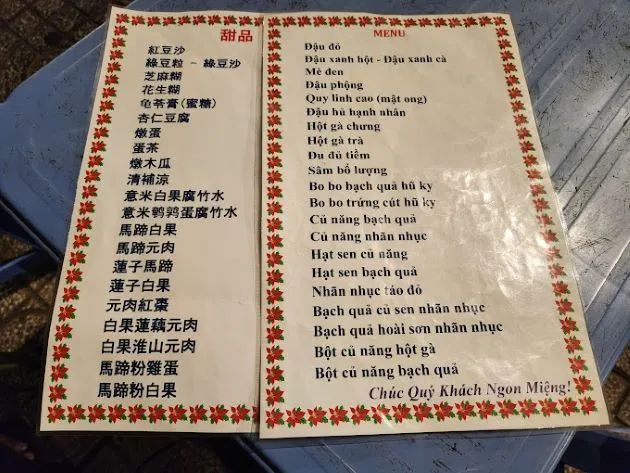 甜品
紅豆沙
綠豆粒 - 綠豆沙
芝麻糊
花生糊
龟苓膏(蜜糖)
杏仁豆腐
燉蛋
蛋茶
燉木瓜
清補涼
意米白果腐竹水
意米鹌鹑蛋腐竹水
馬蹄白果
馬蹄元肉
蓮子馬蹄
蓮子白果
元肉紅棗
白果蓮藕元肉
白果淮山元肉
馬蹄粉雞蛋
馬蹄粉白果
MENU
Đậu đỏ
Đậu xanh hột - Đậu xanh cà
Mè đen
Đậu phộng
Quy linh cao (mật ong)
Đậu hủ hạnh nhân
Hột gà chưng
Hột gà trà
Đu đủ tiềm
Sâm bổ lượng
Bo bo bạch quả hũ ky
Bo bo trứng cút hũ ky
Củ năng bạch quả
Củ năng nhãn nhục
Hạt sen củ năng
Hạt sen bạch quả
Nhãn nhục táo đỏ
Bạch quả củ sen nhãn nhục
Bạch quả hoài sơn nhãn nhục
Bột củ năng hột gà
Bột củ năng bạch quả
Chúc Quý Khách Ngon Miệng!